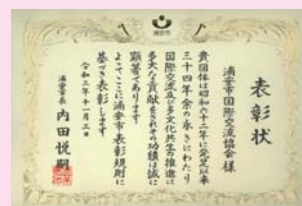 浦安市
表彰状
浦安市国際交流協会様
貴団体は昭和六十二年に発足以来
三十四年余の永きにわたり
国際交流及び多文化共生の推進に
多大な貢献をされその功績は誠に
顕著であります
よってここに浦安市表彰規則に
基づき表彰します
令和三年十一月三日
浦安市長 内田悦嗣